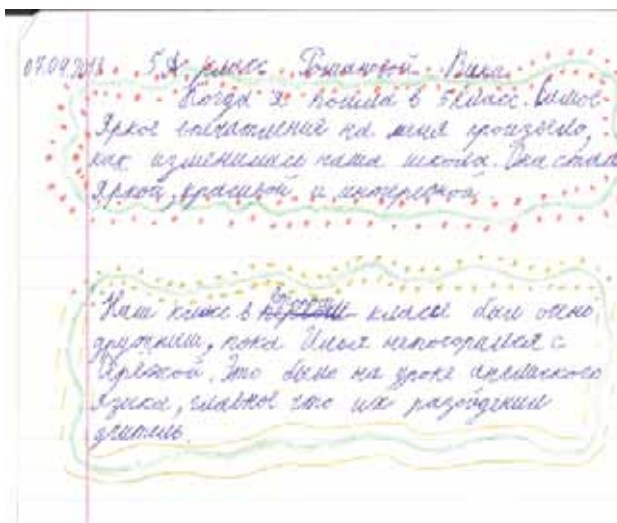 07.09.2018 5А класс Романовой Вика
Когда я пошла в 5 класс. Самое
яркое впечатление на меня произвело,
как изменилась наша школа. Она стала
яркой, красивой и интересной.
Наш класс в классе был очень
дружным, пока Илья непоссорился с
Серёжой. Это было на уроке английского
языка, главное что их разъеденил
учитель.